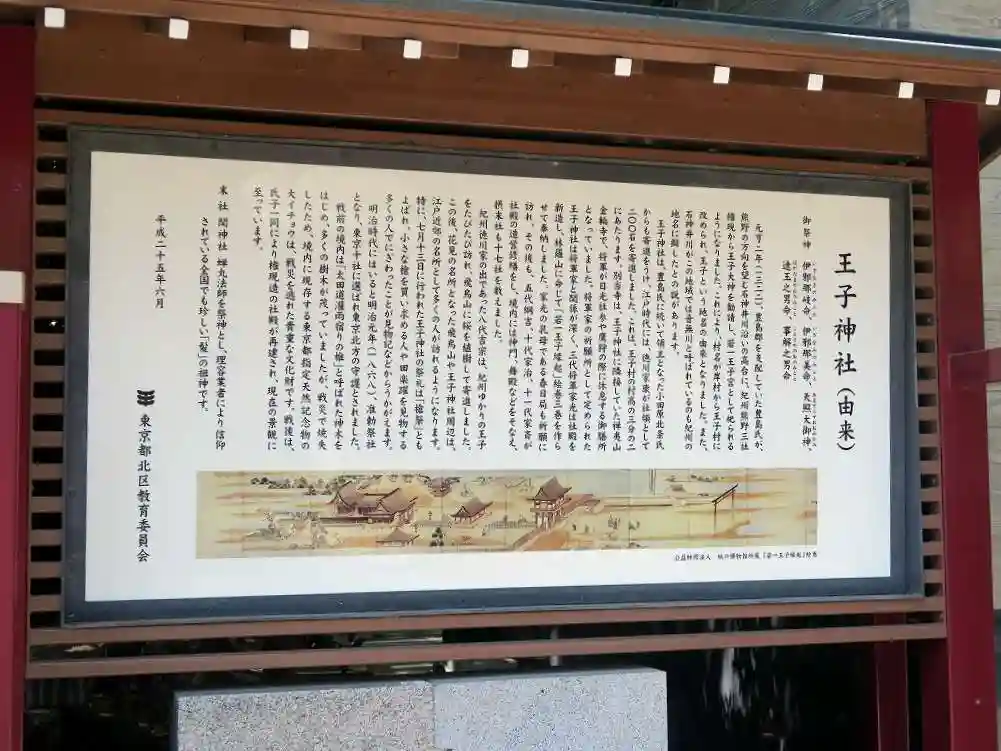 王子神社（由来）
御祭神　伊邪那岐命、伊邪那美命、天照大御神、
速玉之男命、事解之男命
元亨二年（一三二二）、豊島郡を支配していた豊島氏が、
熊野の方向を望む石神井川沿いの高台に、紀州熊野三社
権現から王子大神を勧請し、若一王子宮として祀られる
ようになりました。これにより村名が岸村から王子村に
改められ、王子という地名の由来となりました。また、
石神井川がこの地域では音無川と呼ばれているのも紀州の
地名に擬したとの説があります。
王子神社は豊島氏に続いて領主となった小田原北条氏
からも寄進をうけ、江戸時代には、徳川家康が社領として
二〇〇石を寄進しました。これは、王子村の村高の三分の二
にあたります。別当寺は、王子神社に隣接していた禅夷山
金輪寺で、将軍が日光社参や鷹狩の際に休息する御膳所
となっていました。将軍家の祈願所として定められた
王子神社は将軍家と関係が深く、三代将軍家光は社殿を
新造し、林羅山に命じて「若一王子縁起」絵巻三巻を作ら
せて奉納しました。家光の乳母である春日局も祈願に
訪れ、その後も、五代綱吉、十代家治、十一代家斉が
社殿の造営修繕をし、境内には神門、舞殿などをそなえ、
摂末社も十七社を数えました。
紀州徳川家の出であった八代吉宗は、紀州ゆかりの王子
をたびたび訪れ、飛鳥山に桜を植樹して寄進しました。
この後、花見の名所となった飛鳥山や王子神社周辺は、
江戸近郊の名所として多くの人が訪れるようになります。
特に、七月十三日に行われた王子神社の祭礼は「槍祭」とも
よばれ、小さな槍を買い求める人や田楽躍を見物する
多くの人でにぎわったことが見物記などからうかがえます。
明治時代にはいると明治元年（一八六八）、准勅祭社
となり、東京十社に選ばれ東京北方の守護とされました。
戦前の境内は「太田道灌雨宿りの椎」と呼ばれた神木を
はじめ、多くの樹木が茂っていましたが、戦災で焼失
したため、境内に現存する東京都指定天然記念物の
大イチョウは、戦災を逃れた貴重な文化財です。戦後は、
氏子一同により権現造の社殿が再建され、現在の景観に
至っています。
末社　関神社　蝉丸法師を祭神とし、理容業者により信仰
されている全国でも珍しい「髪」の祖神です。
平成二十五年六月
東京都北区教育委員会
公益財団法人　紙の博物館所蔵『若一王子縁起』絵巻